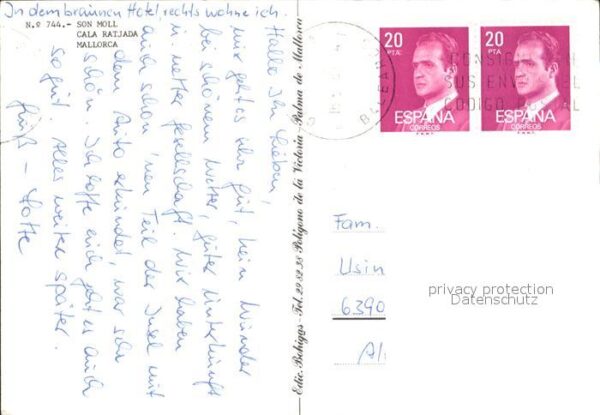 In dem braunen Hotel rechts wohne ich.
N.º 744.- SON MOLL
CALA RATJADA
MALLORCA
Hallo Ihr Lieben,
mir geht es sehr gut, kein Wunder
bei schönem Wetter, guter Unterkunft
u. netter Gesellschaft. Wir haben
auch schon 'nen Teil der Insel mit
dem Auto erkundet, war sehr
schön. Ich hoffe euch geht es auch
so gut. Alles weiter später.
Gruß - Lotte
Edic. Bohigas - Tel. 29 82 38 Polígono de la Victoria - Palma de Mallorca
20
PTA
ESPAÑA
CORREOS
20
PTA
ESPAÑA
CORREOS
BALEARES
CONSIGNE EN
SUS ENVIOS EL
CODIGO POSTAL
Fam.
Usin
6390
privacy protection
Datenschutz